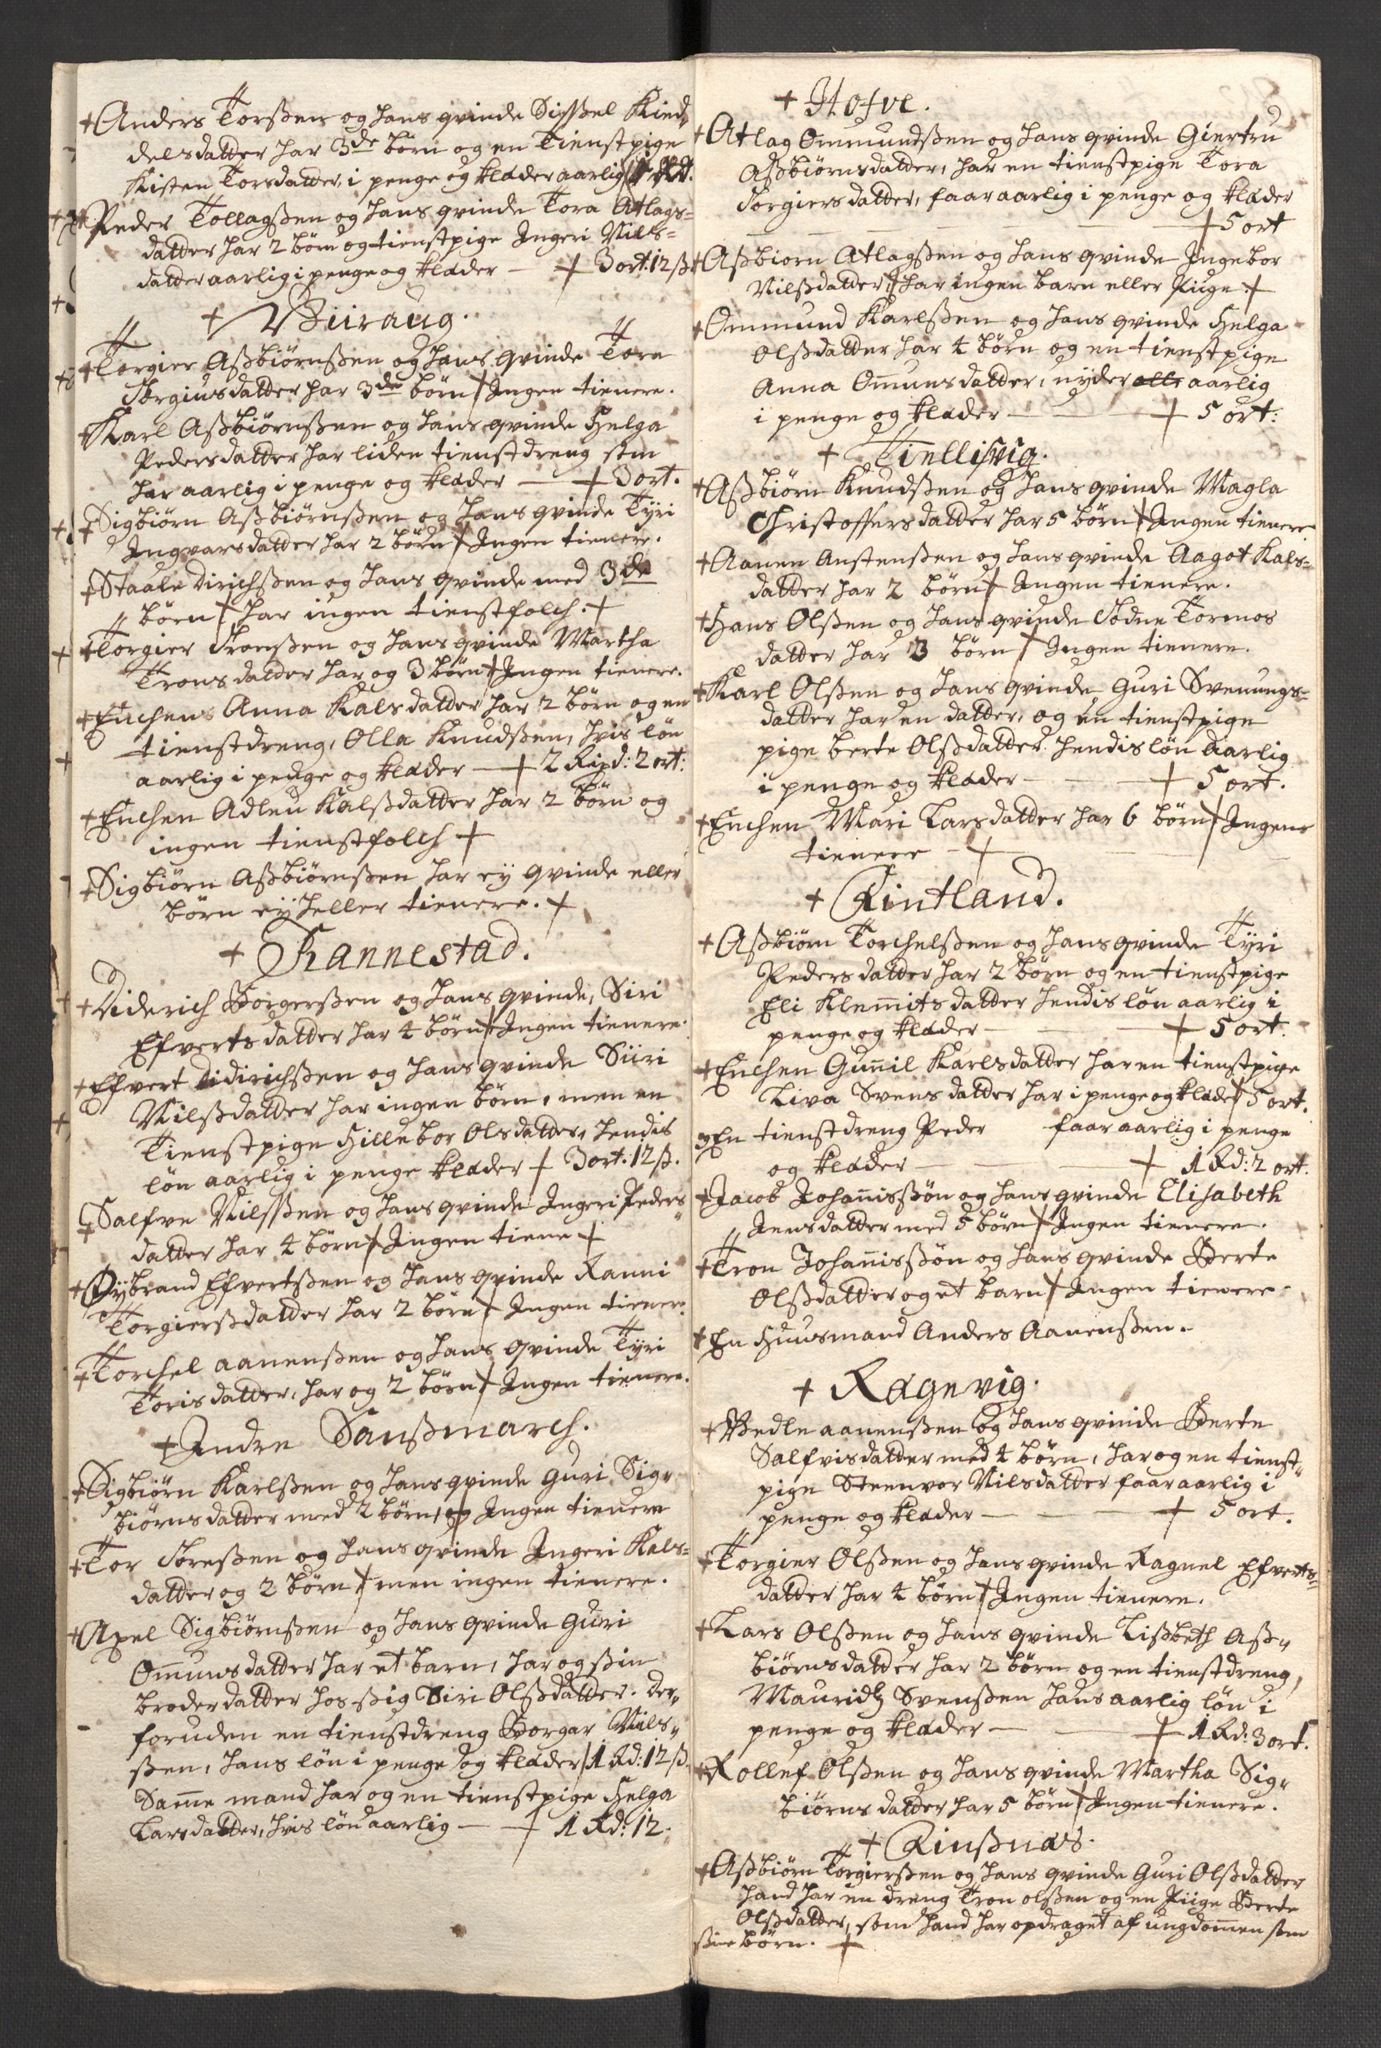 Anders Torsßen og hans qvinde Sissel Kied-
delsdatter har 3de børn og en Tienstpige
Kisten Torsdatter, i penge og klæder aarlig
Peder Tollagsßen og hans qvinde Tora Atlags-
datter har 2 børn og tienstpige Ingeri Niels-
datter aarlig i penge og klæder — + 3 ort: 12 ß
+
+Torgier Aßbiørnsßen og hans qvinde Tora
Torgiusdatter har 3de børn + Ingen tienere.
+Karl Aßbiørnsßen og hans qvinde Helga
Pedersdatter har liden tienstdreng som
har aarlig i penge og klæder — + 3 ort.
+Sigbiørn Aßbiørnsßen og hans qvinde Tyri
Ingvarsdatter har 2 børn + Ingen tienere.
+Staale Dirichsßen og hans qvinde med 3de
børn +, har ingen tienstfolch. +
+Torgier Tronsßen og hans qvinde Martha
Tronsdatter har og 3 børn + Ingen tienere.
+Enchens Anna Kalsdatter har 2 børn og en
tienstdreng, Olla Knudsßen, hvis løn
aarlig i penge og klæder — + 2 Rixd: 2 ort:
+Enchen Adleu Kalsdatter har 2 børn og
ingen tienstfolch +
+Sigbiørn Aßbiørnsßen har ey qvinde eller
børn ey heller tienere. +
+ Rannestad.
+Diderich Borgersßen og hans qvinde, Siri
Efvertsdatter har 4 børn + Ingen tienere.
+Efvert Didirichsßen og hans qvinde Siiri
Nilsßdatter har ingen børn, men en
Tienstpige Hillebor Olsdatter, hendis
løn aarlig i penge klæder + 3 ort. 12 ß.
+Salfve Nilsßen og hans qvinde Ingeri Peders
datter har 4 børn + Ingen tiene +
+Øybrand Efvertsßen og hans qvinde Ranni
Torgiersßdatter har 2 børn + Ingen tiener.
+Torchel aanensßen og hans qvinde Tyri
Torisdatter, har og 2 børn + Ingen tienere.
+Indre Sanßmarch.
+Sigbiørn Karlsßen og hans qvinde Guri Sig-
biørnsdatter med 2 børn, + Ingen tienere
+Tor Toresßen og hans qvinde Ingeri Kals-
datter og 2 børn + men ingen tienere.
+Axel Sigbiørnsßen og hans qvinde Guri
Om̄unsdatter har et barn, har og ßin
broderdatter hos ßig Siri Olsßdatter. der-
foruden en tienstdreng Borgar Niels-
ßen, hans løn i penge og klæder + 1 Rd: 12 ß.
Sam̄e mand har og en tienstpige Helga
Larsdatter, hvis løn aarlig — + 1 Rd: 12.
+ Hofve.
+Atlag Ommundsßen og hans qvinde Giertru
Aßbiørnsdatter, har en tienstpige Tora
Torgiersdatter, faar aarlig i penge og klæder
— + 5 ort
+Aßbiorn Atlagsßen og hans qvinde Ingebor
Nilsßdatter + har ingen barn eller Piige +
+Ommund Karlsßen og hans qvinde Helga
Olsßdatter har 4 børn og en tienstpige
Anna Om̄unsdatter, nyder aarlig
i penge og klæder — + 5 ort:
+ Tiellisvig.
+Aßbiørn Knudsßen og hans qvinde Magla
Christoffersdatter har 5 børn + Ingen tienere
+Aanen Anstensßen og hans qvinde Aagot Kals-
datter har 2 børn + Ingen tienere.
+Hans Olsßen og hans qvinde Tormos
datter har 3 børn + Ingen tienere.
+Karl Olsßen og hans qvinde Guri Svenungs-
datter har en datter, og en tienstpige
pige berte Olsßdatter hendis løn aarlig
i penge og klæder — + 5 ort.
+Enchen Mari Larsdatter har 6 børn + Ingen
tienere — +
+ Rintland.
+Aßbiørn Torchelsßen og hans qvinde Tyri
Pedersdatter har 2 børn og en tienstpige
Eli Klem̄itsdatter hendis løn aarlig i
penge og klæder — + 5 ort.
+Enchen Gun̄il Karlsdatter har en tienstpige
Liva Svensdatter har i penge og klæder + 5 ort.
En tienstdreng Peder faar aarlig i penge
og klæder — + 1 Rd: 2 ort.
+Jacob Johan̄isßøn og hans qvinde Elisabeth
Jensdatter med 5 børn + Ingen tienere.
+Tron Johan̄isßøn og hans qvinde Berte
Olsßdatter og et barn + Ingen tienere.
+En Huusmand Anders Aanensßen.
+ Rægevig.
+Vedle aanensßen og hans qvinde Berte
Salfvisdatter med 4 børn, har og en tienst-
pige Steenvor Nilsdatter faar aarlig i
penge og klæder — + 5 ort.
+Torgier Olsßen og hans qvinde Ragnel Efverts-
datter har 4 børn + Ingen tienere.
+Lars Olsßen og hans qvinde Lisbeth Aß-
biørnsdatter har 2 børn og en tienstdreng,
Mauridtz Svensßen hans aarlig løn i
penge og klæder — + 1 Rd: 3 ort.
+Rollef Olsßen og hans qvinde Martha Sig-
biørnsdatter har 5 børn + Ingen tienere.
+ Rinßnæs.
+Aßbiørn Torgiersßen og hans qvinde Guri Olsßdatter
hand har en dreng Tron olsßen og en Piige Berte
Olsßdatter, som hand har opdraget af ungdom̄en som
ßine børn. +